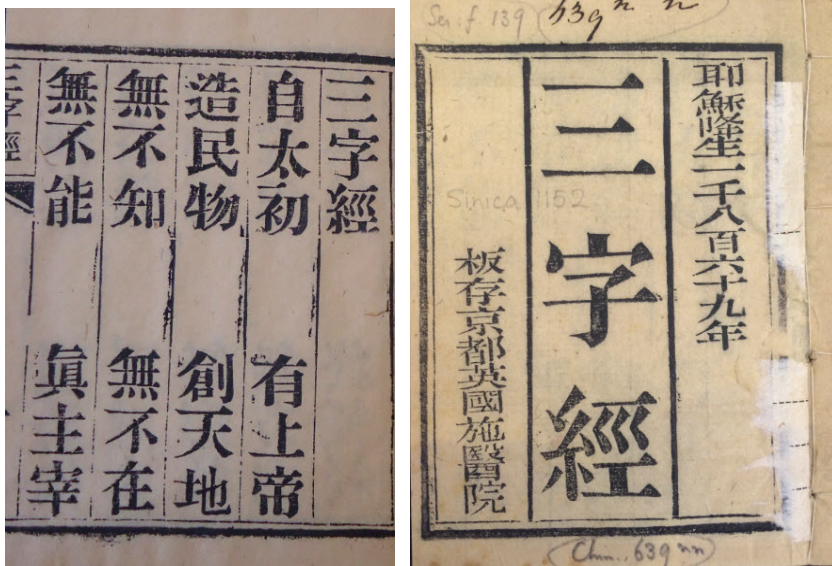 三字經
自太初 有上帝
造民物 創天地
無不知 無不在
無不能 眞主宰
三字經
Ser. f. 139
639 n n
耶穌降生一千八百六十九年
三字經
Sinica 1152
板存京都英國施醫院
Chin. 639 nn